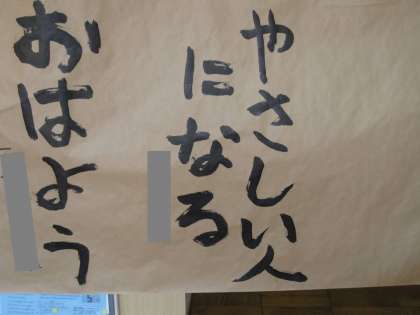 やさしい人
になる
おはよう